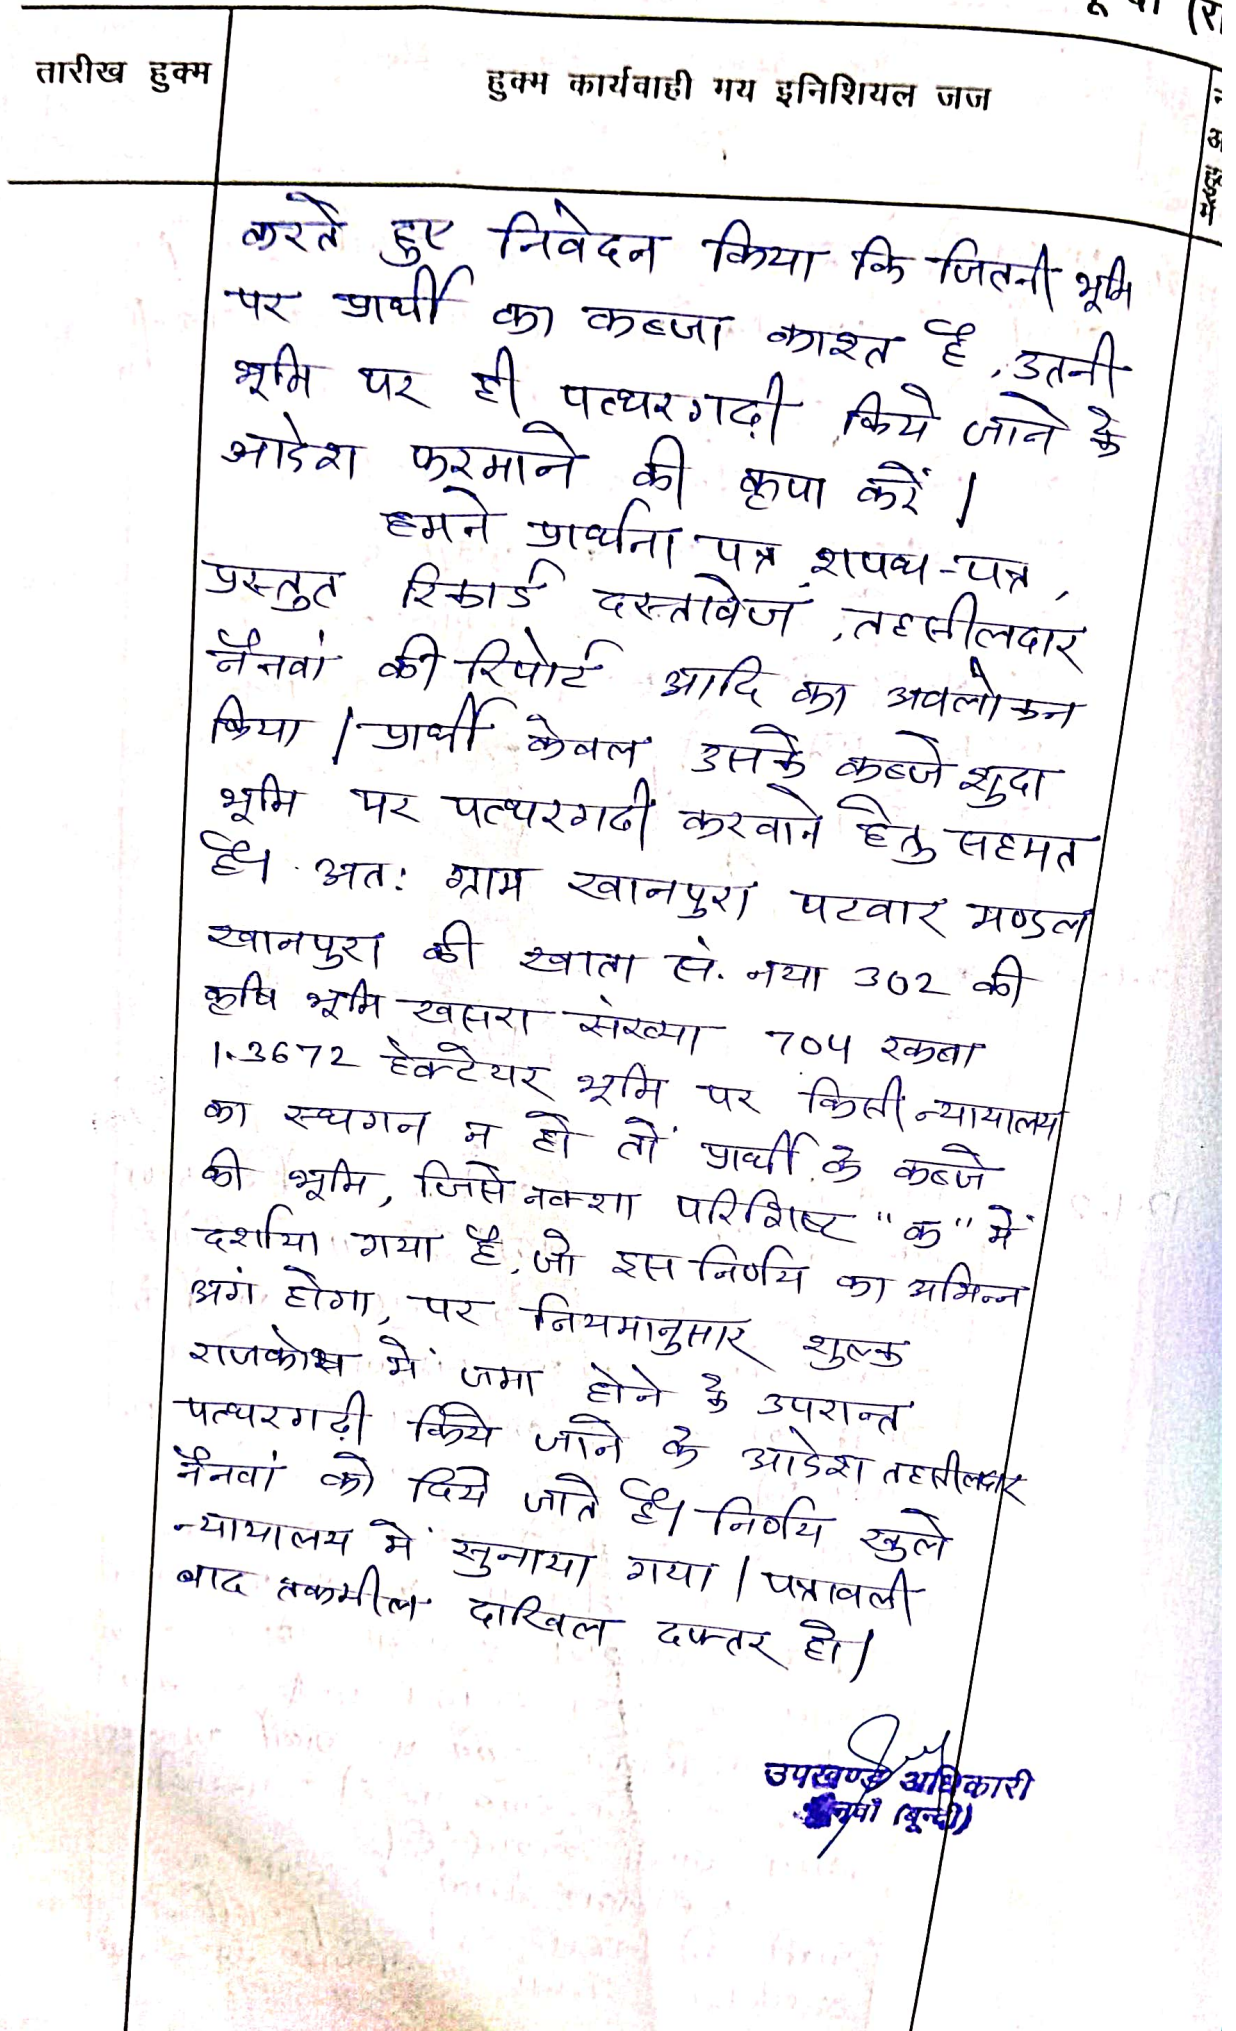 तारीख हुक्म
हुक्म कार्यवाही मय इनिशियल जज
करते हुए निवेदन किया कि जितनी भूमि
पर प्रार्थी का कब्जा काश्त है, उतनी
भूमि पर ही पत्थरगढ़ी किये जाने के
आदेश फरमाने की कृपा करें।
हमने प्रार्थना पत्र, शपथ-पत्र,
प्रस्तुत रिकार्ड दस्तावेज, तहसीलदार
नैनवां की रिपोर्ट आदि का अवलोकन
किया। प्रार्थी केवल उसके कब्जे शुदा
भूमि पर पत्थरगढी करवाने हेतु सहमत
है। अतः ग्राम खानपुरा पटवार मण्डल
खानपुरा की खाता सं. नया 302 की
कृषि भूमि खसरा संख्या 704 रकबा
1.3672 हेक्टेयर भूमि पर किसी न्यायालय
का स्थगन न हो तो प्रार्थी के कब्जे
की भूमि, जिसे नक्शा परिशिष्ट "क" में
दर्शाया गया है, जो इस निर्णय का अभिन्न
अगं होगा, पर नियमानुसार शुल्क
राजकोष में जमा होने के उपरान्त
पत्थरगढ़ी किये जाने के आदेश तहसीलदार
नैनवां को दिये जाते है। निर्णय खुले
न्यायालय में सुनाया गया। पत्रावली
बाद तकमील दाखिल दफ्तर हो।
उपखण्ड अधिकारी
नैनवाँ (बून्दी)